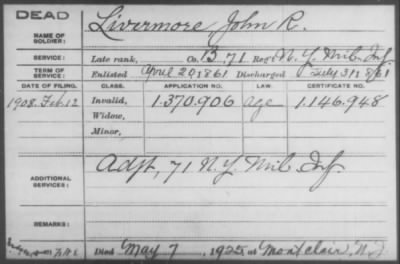 DEAD
NAME OF SOLDIER: Livermore, John R.
SERVICE: Late rank, Co. B. 71 Reg't N.Y. Mil. Inf.
TERM OF SERVICE: Enlisted April 20 1861 Discharged July 31, 1861
DATE OF FILING. CLASS. APPLICATION NO. LAW. CERTIFICATE NO.
1908. Feb. 12 Invalid, 1.370.906 age 1.146.948
Widow,
Minor,
ADDITIONAL SERVICES: Adjt, 71 N.Y. Mil. Inf.
REMARKS:
Died May 7, 1925 at Montclair, N.J.